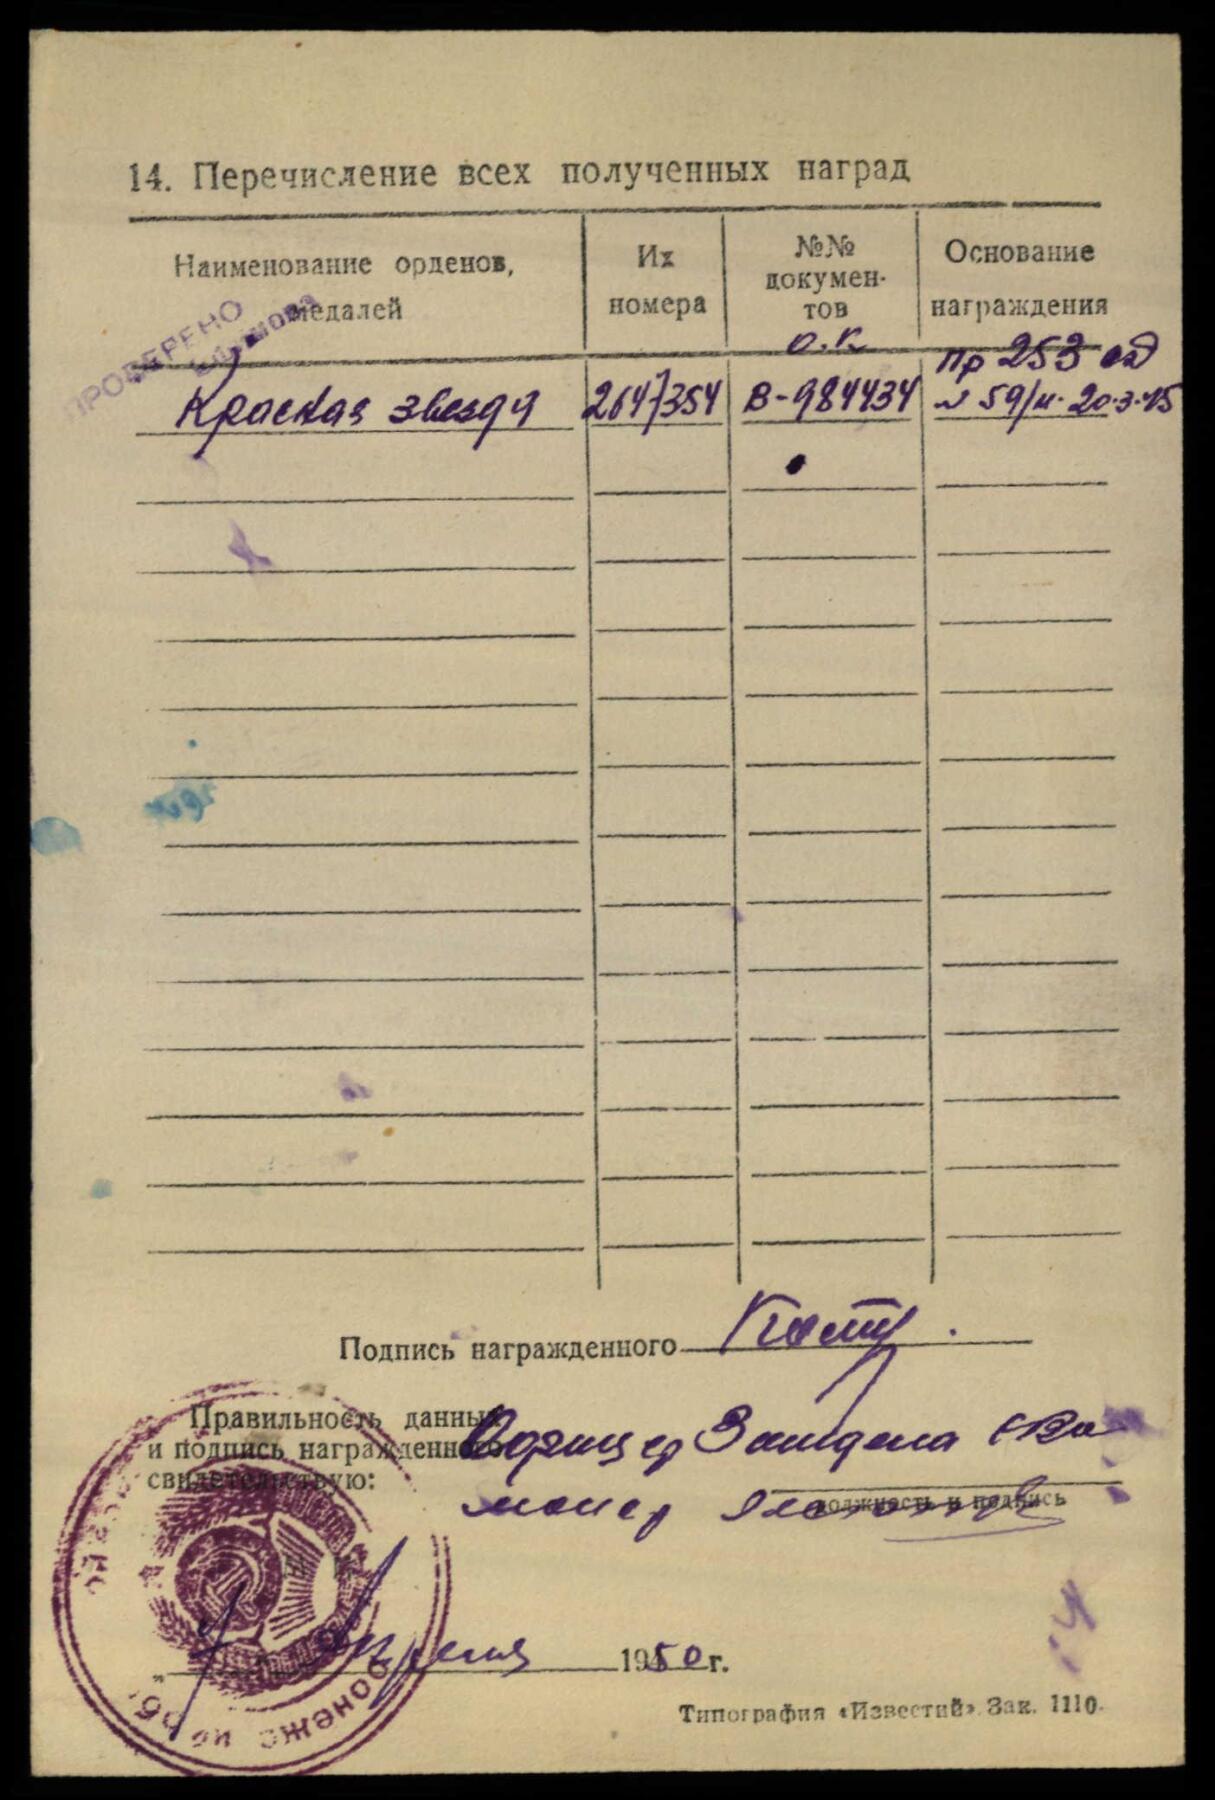 14. Перечисление всех полученных наград
Наименование орденов, медалей
Их номера
№№ докумен-тов
Основание награждения
ПРОВЕРЕНО
о.к. Пр 253 сд
Красная звезда 2647354 В-984434 № 59/н. 20.3.45
Подпись награжденного
Правильность данных
и подпись награжденного
свидетельствую:
должность и подпись
апреля 1950 г.
Типография «Известий». Зак. 1110.